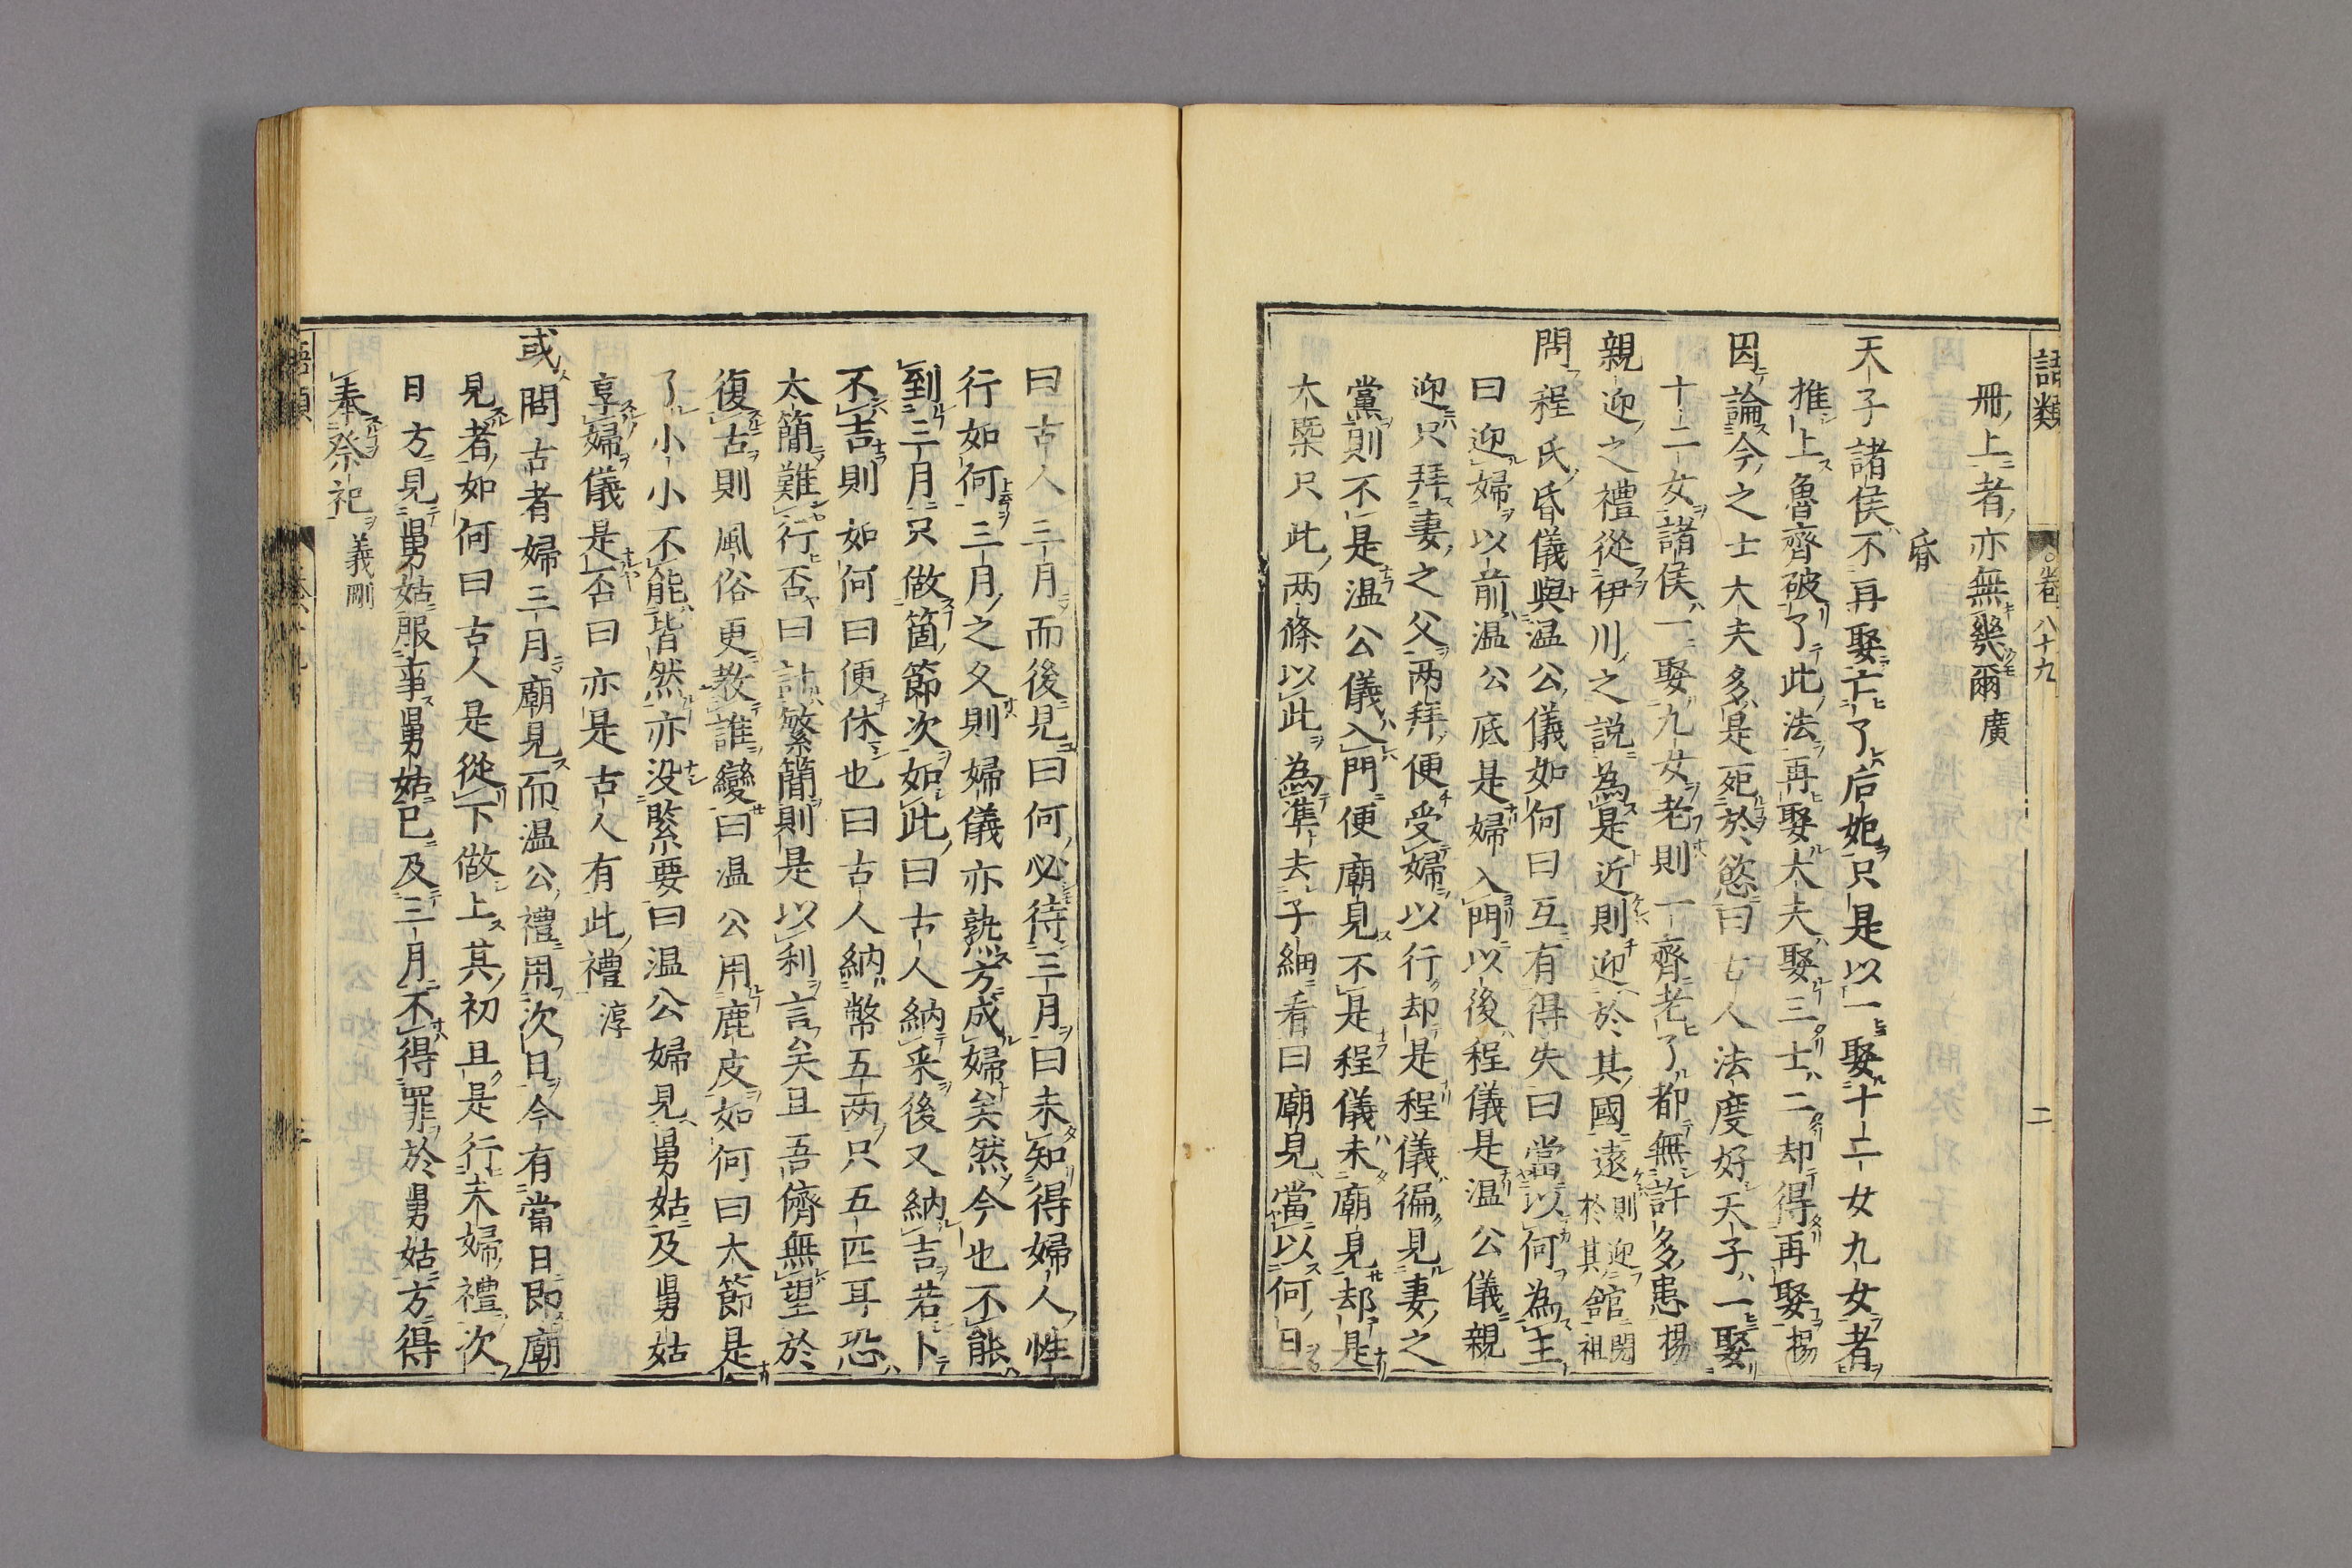 語類 卷八十九 二
冊上者亦無幾爾廣
昏
天子諸侯不再娶亡了后妃只是以一娶十二女九女者
推上魯齊破了此法再娶大夫娶三士二却得再娶揚
因論今之士大夫多是死於慾曰古人法度好天子一娶
十二女諸侯一娶九女老則一齊老了都無許多患揚
親迎之禮從伊川之説為是近則迎於其國遠則迎於其館閎祖
問程氏昏儀與温公儀如何曰互有得失曰當以何為主
曰迎婦以前温公底是婦入門以後程儀是温公儀親
迎只拜妻之父两拜便受婦以行却是程儀徧見妻之
黨則不是温公儀入門便廟見不是程儀未廟見却是
大槩只此两條以此為準去子細看曰廟見當以何日
曰古人三月而後見曰何必待三月曰未知得婦人性
行如何三月之久則婦儀亦熟方成婦矣然今也不能
到三月只做箇節次如此曰古人納采後又納吉若卜
不吉則如何曰便休也曰古人納幣五两只五匹耳恐
太簡難行否曰計繁簡則是以利言矣且吾儕無望於
復古則風俗更教誰變曰温公用鹿皮如何曰大節是
了小小不能皆然亦没緊要曰温公婦見舅姑及舅姑
享婦儀是否曰亦是古人有此禮淳
或問古者婦三月廟見而温公禮用次日今有當日即廟
見者如何曰古人是從下做上其初且是行夫婦禮次
日方見舅姑服事舅姑已及三月不得罪於舅姑方得
奉祭祀義剛